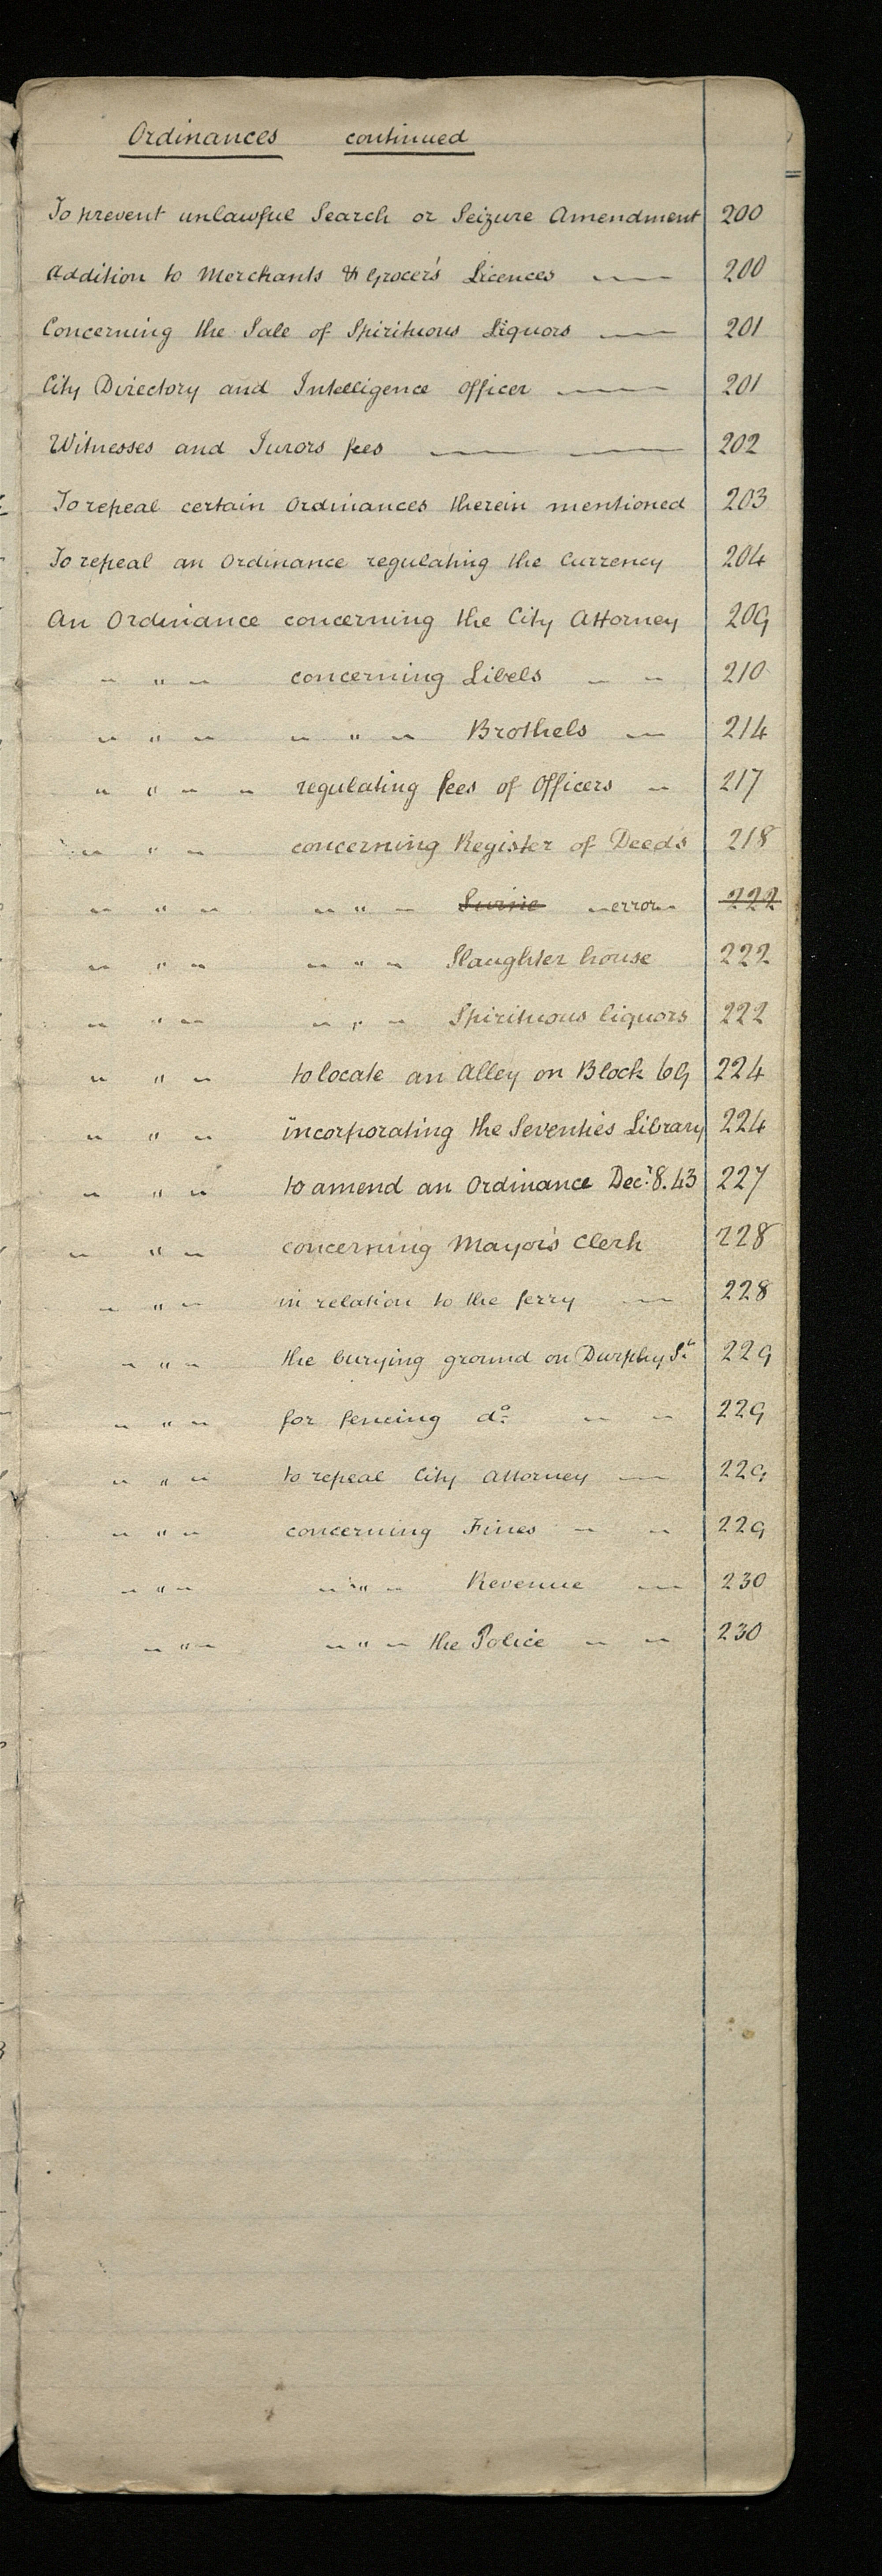 Ordinances continued
To prevent unlawful Search or Seizure Amendment 200
Addition to Merchants & Grocer's Licences — 200
Concerning the Sale of Spirituous Liquors — 201
City Directory and Intelligence officer — 201
Witnesses and Jurors fees — — 202
To repeal certain Ordinances therein mentioned 203
To repeal an Ordinance regulating the Currency 204
An Ordinance concerning the City Attorney 209
" " " concerning Libels " " 210
" " " " " " Brothels — 214
" " " " regulating fees of Officers " 217
" " " concerning Register of Deeds 218
" " " " " " Swine "error" 222
" " " " " " Slaughter house 222
" " " " " " Spirituous liquors 222
" " " to locate an Alley on Block 69 224
" " " incorporating the Seventies Library 224
" " " to amend an Ordinance Decr. 8. 43 227
" " " concerning Mayor's Clerk 228
" " " in relation to the ferry — 228
" " " the burying ground on Durphy St. 229
" " " for fencing do. " " 229
" " " to repeal City Attorney — 229
" " " concerning Fines " " 229
" " " " " " Revenue — 230
" " " " " " the Police " " 230